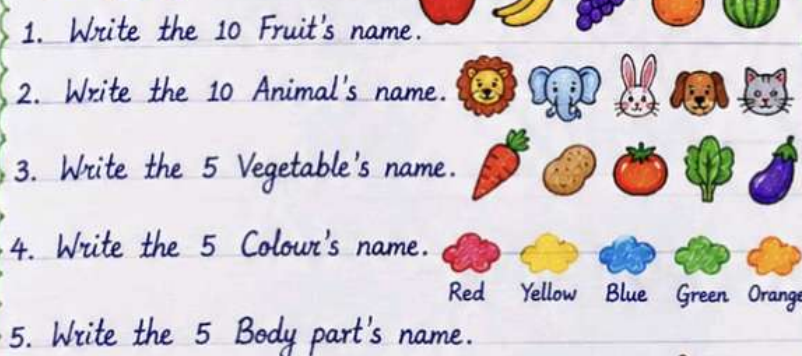 1. Write the 10 Fruit's name.
2. Write the 10 Animal's name.
3. Write the 5 Vegetable's name.
4. Write the 5 Colour's name.
Red Yellow Blue Green Orange
5. Write the 5 Body part's name.